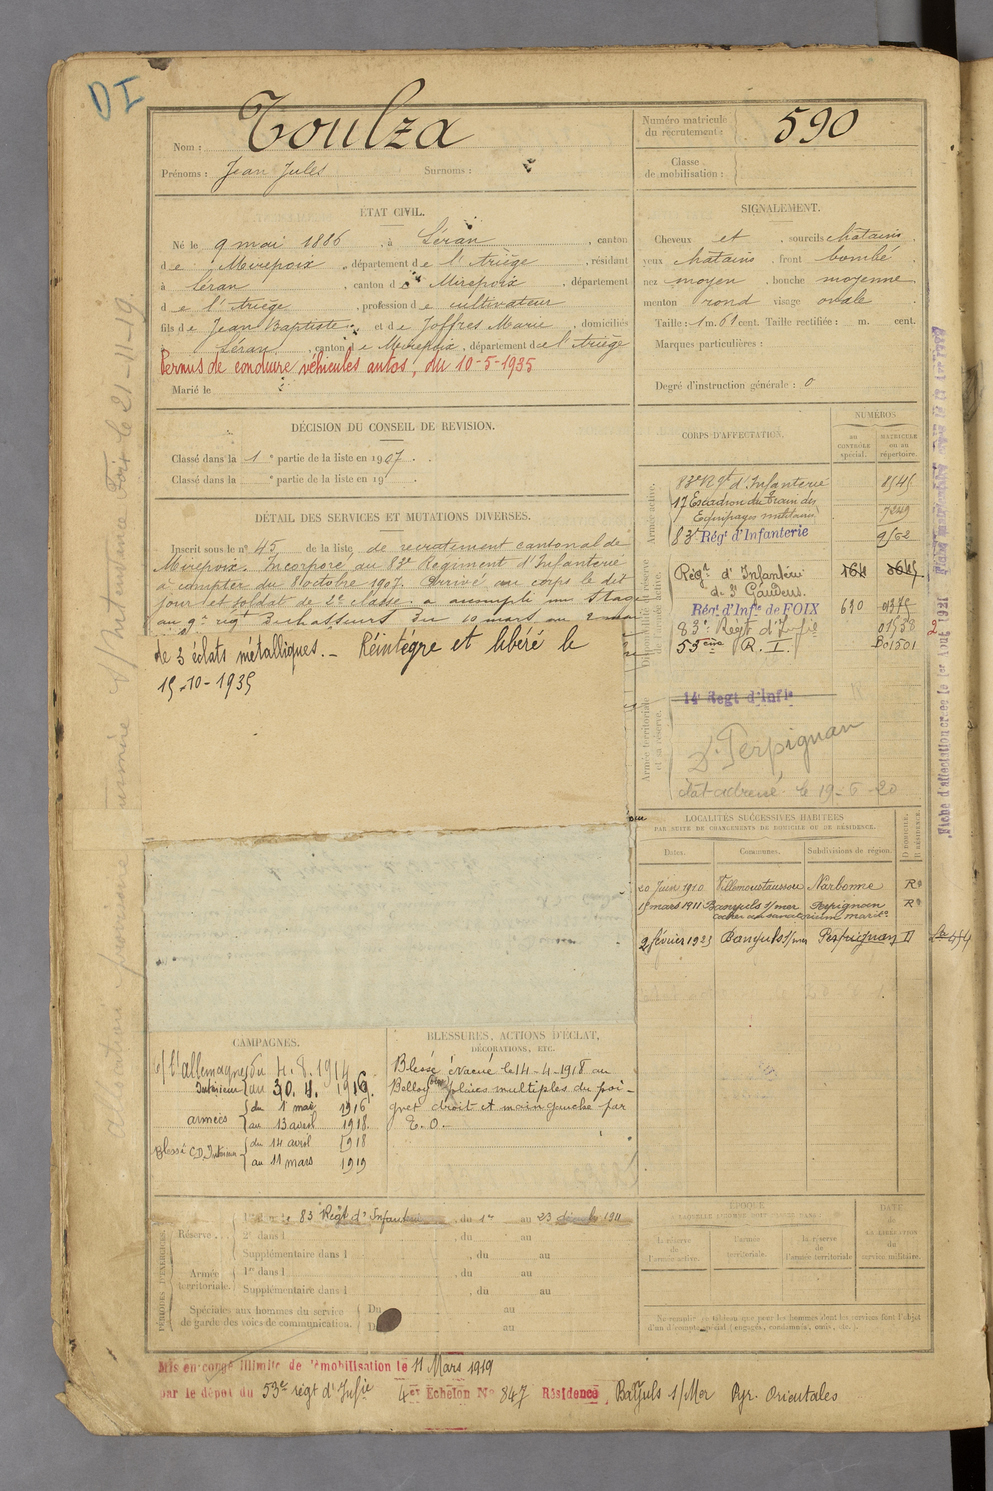 DI
Nom : Toulza
Prénoms : Jean Jules Surnoms :
Numéro matricule du recrutement : 590
Classe de mobilisation :
ÉTAT CIVIL.
Né le 9 mai 1886, à Léran, canton
de Mirepoix, département de l'Ariège, résidant
à Léran, canton de Mirepoix, département
de l'Ariège, profession de cultivateur
fils de Jean Baptiste et de Joffres Marie, domiciliés
à Léran, canton de Mirepoix, département de l'Ariège
Permis de conduire véhicules autos, du 10-5-1935
Marié le
SIGNALEMENT.
Cheveux et, sourcils chatains
yeux chatains, front bombé
nez moyen, bouche moyenne
menton rond visage ovale
Taille : 1 m. 61 cent. Taille rectifiée : m. cent.
Marques particulières :
Degré d'instruction générale : 0
DÉCISION DU CONSEIL DE REVISION.
Classé dans la 1e partie de la liste en 1907.
Classé dans la e partie de la liste en 19
DÉTAIL DES SERVICES ET MUTATIONS DIVERSES.
Inscrit sous le n° 45 de la liste de recrutement cantonal de
Mirepoix. Incorporé au 83e Régiment d'Infanterie
à compter du 8 octobre 1907. Arrivé au corps le dit
jour et soldat de 2e classe. a accompli un stage
au 9e régt de chasseurs du 10 mars au 2 mai
de 3 éclats métalliques. - Réintégré et libéré le
15-10-1935
CORPS D'AFFECTATION.
NUMÉROS
AU CONTRÔLE spécial.
MATRICULE ou au répertoire.
Armée active.
83e Rgt d'Infanterie 8545
17 Escadron du Train des
Equipages militaires
83e Rég. d'Infanterie
Disponibilité et réserve de l'armée active.
Régt d'Infanterie 164
de St Gaudens.
Régt d'Infie de FOIX 630
83e Régt d'Infie
53ème R. I.
Armée territoriale et sa réserve.
14e Regt d'Infie
Dt Perpignan
le 19-6-20
LOCALITÉS SUCCESSIVES HABITÉES
PAR SUITE DE CHANGEMENTS DE DOMICILE OU DE RÉSIDENCE.
Dates. Communes. Subdivisions de région. D DOMICILE. R RÉSIDENCE.
20 Juin 1910 Villemoustaussou Narbonne R
15 mars 1911 Banyuls s/mer Perpignan R
cocher au sanatorium marite
2 février 1923 Banyuls s/mer Perpignan D
CAMPAGNES.
C/ l'allemagne du 4.8.1914
Intérieur au 30.4.1916.
armées du 1 mai 1916
au 13 avril 1918.
Blessé C.D. Intérieur du 14 avril 1918
au 11 mars 1919
BLESSURES, ACTIONS D'ÉCLAT,
DÉCORATIONS, ETC.
Blessé évacué le 14-4-1918 au
Belloy plaies multiples du poi-
gnet droit et main gauche par
E.O.
PÉRIODES D'EXERCICES.
Réserve.. 83 Régt d'Infanterie, du 1er au 23 décembre 1911
2e dans l, du au
Supplémentaire dans l, du au
Armée territoriale. 1re dans l, du au
Supplémentaire dans l, du au
Spéciales aux hommes du service
de garde des voies de communication. Du au
Du au
ÉPOQUE
À LAQUELLE L'HOMME DOIT PASSER DANS
la réserve de l'armée active.
l'armée territoriale.
la réserve de l'armée territoriale
DATE de LA LIBÉRATION du service militaire.
Ne remplir ce tableau que pour les hommes dont les services font l'objet
d'un décompte spécial (engagés, condamnés, omis, etc.).
Mis en congé illimité de démobilisation le 11 Mars 1919
par le dépôt du 53e régt d'Infie 4e Echelon N° 847 Résidence Banyuls s/Mer Pyr. Orientales
Fiche d'affectation créée le 1er Août 1921